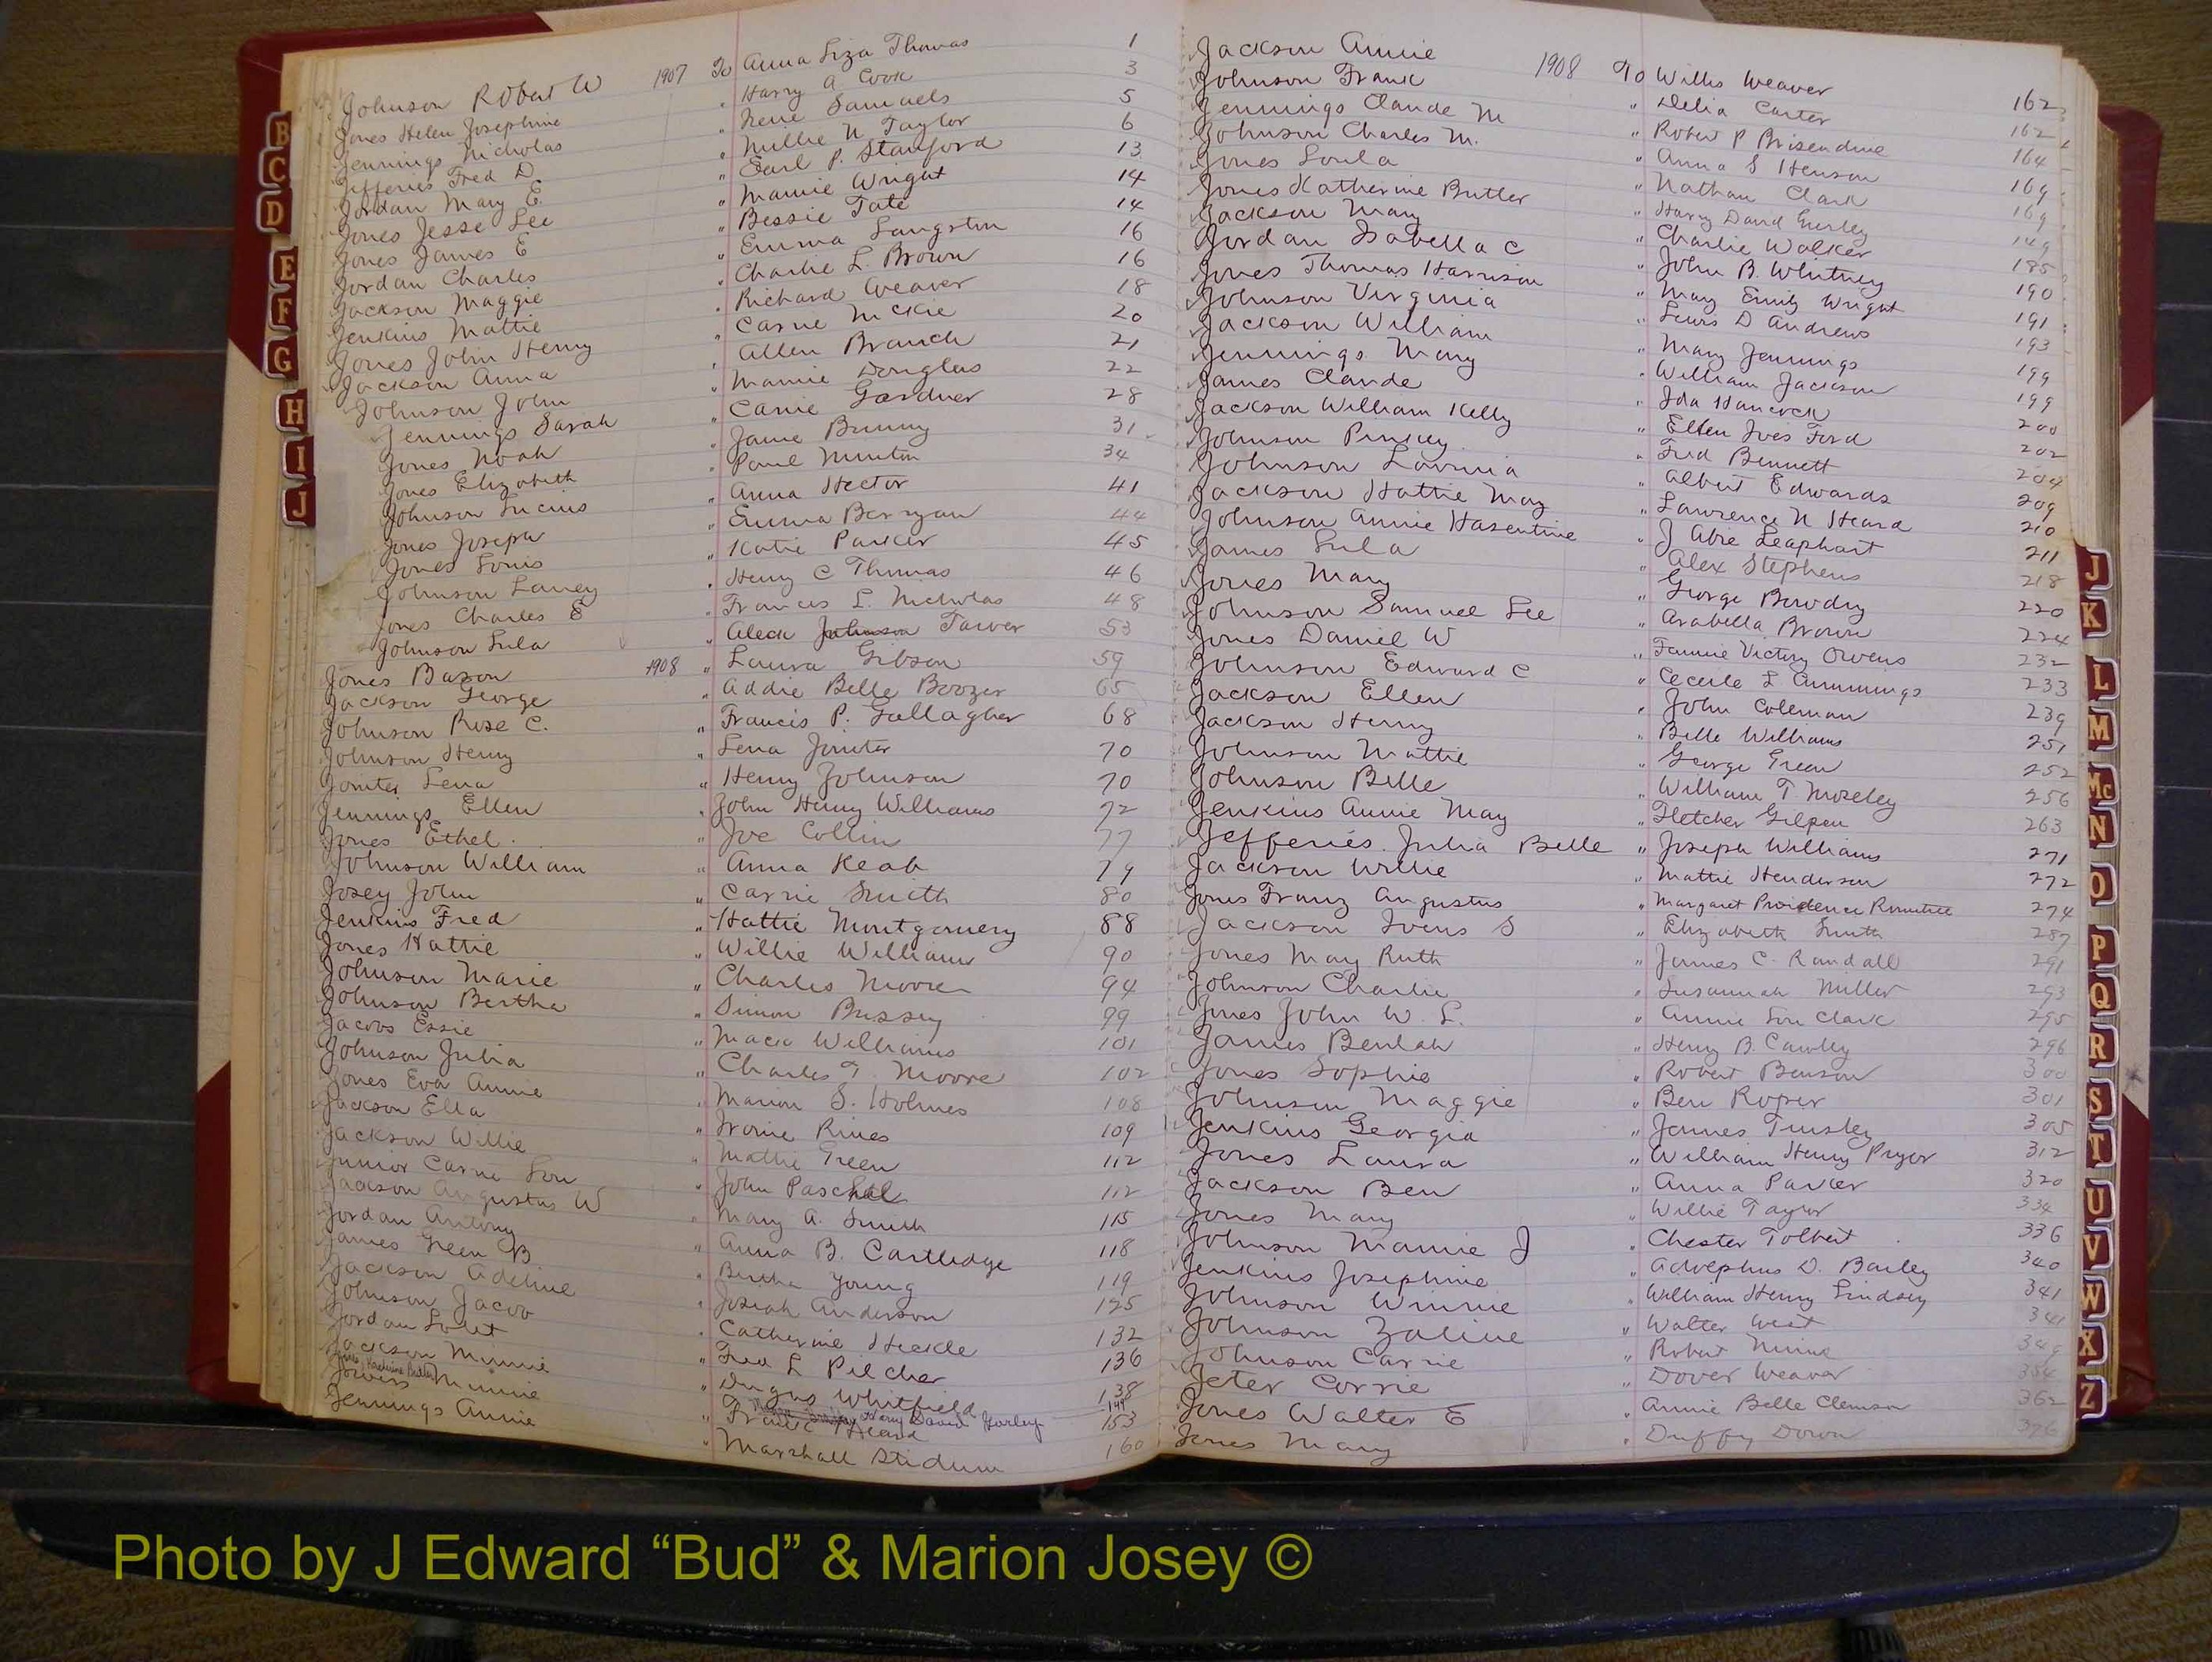 Johnson Robert W 1907 To Anna Liza Thomas 1
Jones Helen Josephine " Harry A Cook 3
Jennings Nicholas " Irene Samuels 5
Jefferies Fred D " Millie N Taylor 6
Jordan Mary E. " Earl P. Stanford 13
Jones Jesse Lee " Mamie Wright 14
Jones James E " Bessie Tate 14
Jordan Charles " Emma Langston 16
Jackson Maggie " Charlie L Brown 16
Jenkins Mattie " Richard Weaver 18
Jones John Henry " Carrie McKie 20
Jackson Anna " Allen Branch 21
Johnson John " Mamie Douglas 22
Jennings Sarah " Carrie Gardner 28
Jones Noah " Janie Bunny 31
Jones Elizabeth " Paul Minton 34
Johnson Lucius " Anna Hector 41
Jones Joseph " Emma Berryan 44
Jones Louis " Katie Parker 45
Johnson Laney " Henry C Thomas 46
Jones Charles E " Frances L. Nicholas 48
Johnson Lula " Aleck Johnson Tarver 53
Jones Bason 1908 " Laura Gibson 59
Jackson George " Addie Belle Boozer 65
Johnson Rose C. " Francis P. Gallagher 68
Johnson Henry " Lena Joniter 70
Joniter Lena " Henry Johnson 70
Jennings Ellen " John Henry Williams 72
Jones Ethel " Joe Collin 77
Johnson William " Anna Reab 79
Josey John " Carrie Smith 80
Jenkins Fred " Hattie Montgomery 88
Jones Hattie " Willie Williams 90
Johnson Marie " Charles Moore 94
Johnson Bertha " Simon Bussey 99
Jacobs Essie " Mack Williams 101
Johnson Julia " Charles T. Moore 102
Jones Eva Annie " Marion S. Holmes 108
Jackson Ella " Ivorie Rines 109
Jackson Willie " Mattie Green 112
Junior Carrie Lou " John Paschal 112
Jackson Augustus W " Mary A. Smith 115
Jordan Antony " Anna B. Cartledge 118
James Green B " Bertha Young 119
Jackson Adeline " Josiah Anderson 125
Johnson Jacob " Catherine Heckle 132
Jordan Lovet " Fred L Pilcher 136
Jackson Minnie " Dugas Whitfield 138
Jones, Katherine Butler Harry David Gurley 149
Minnie " Frank Heard 153
Jennings Annie " Marshall Stidum 160
Jackson Annie 1908 To Willis Weaver 162
Johnson Frank " Delia Carter 162
Jennings Claude M " Robert P Brisendine 164
Johnson Charles M. " Anna S Henson 169
Jones Loula " Nathan Clark 169
Jones Katherine Butler " Harry David Gurley 149
Jackson Mary " Charlie Walker 185
Jordan Isabella C " John B. Whitney 190
Jones Thomas Harrison " May Emily Wright 191
Johnson Virginia " Lewis D Andrews 193
Jackson William " Mary Jennings 199
Jennings Mary " William Jackson 199
James Claude " Ida Hancock 200
Jackson William Kelly " Ellen Ives Ford 202
Johnson Pinkey " Fred Bennett 204
Johnson Lavinia " Albert Edwards 209
Jackson Hattie May " Lawrence N Heard 210
Johnson Annie Hasentine " J Abie Leaphart 211
James Lula " Alex Stephens 218
Jones Mary " George Bowdry 220
Johnson Samuel Lee " Arabella Brown 224
Jones Daniel W " Fannie Victory Owens 232
Johnson Edward C " Cecile L Cummings 233
Jackson Ellen " John Coleman 239
Jackson Henry " Belle Williams 251
Johnson Mattie " George Green 252
Johnson Belle " William T Moseley 256
Jenkins Annie May " Fletcher Gilpen 263
Jefferies Julia Belle " Joseph Williams 271
Jackson Willie " Mattie Henderson 272
Jones Franz Augustus " Margaret Providence Rountree 274
Jackson Ivens S " Elizabeth Smith 287
Jones May Ruth " James C. Randall 291
Johnson Charlie " Susannah Miller 293
Jones John W. L. " Annie Lou Clark 295
James Beulah " Henry B. Cawley 296
Jones Sophie " Robert Benson 300
Johnson Maggie " Ben Roper 301
Jenkins Georgia " James Tinsley 305
Jones Laura " William Henry Pryor 312
Jackson Ben " Anna Parker 320
Jones Mary " Willie Taylor 334
Johnson Mamie J " Chester Tolbert 336
Jenkins Josephine " Adolphus D. Bailey 340
Johnson Winnie " William Henry Lindsey 341
Johnson Zaline " Walter West 341
Johnson Carrie " Robert Nunn 349
Jeter Corrie " Dover Weaver 354
Jones Walter E " Annie Belle Clemson 362
Jones Mary " Duffy Down 376
B
C
D
E
F
G
H
I
J
J
K
L
M
Mc
N
O
P
Q
R
S
T
U
V
W
X
Z
Photo by J Edward “Bud” & Marion Josey ©